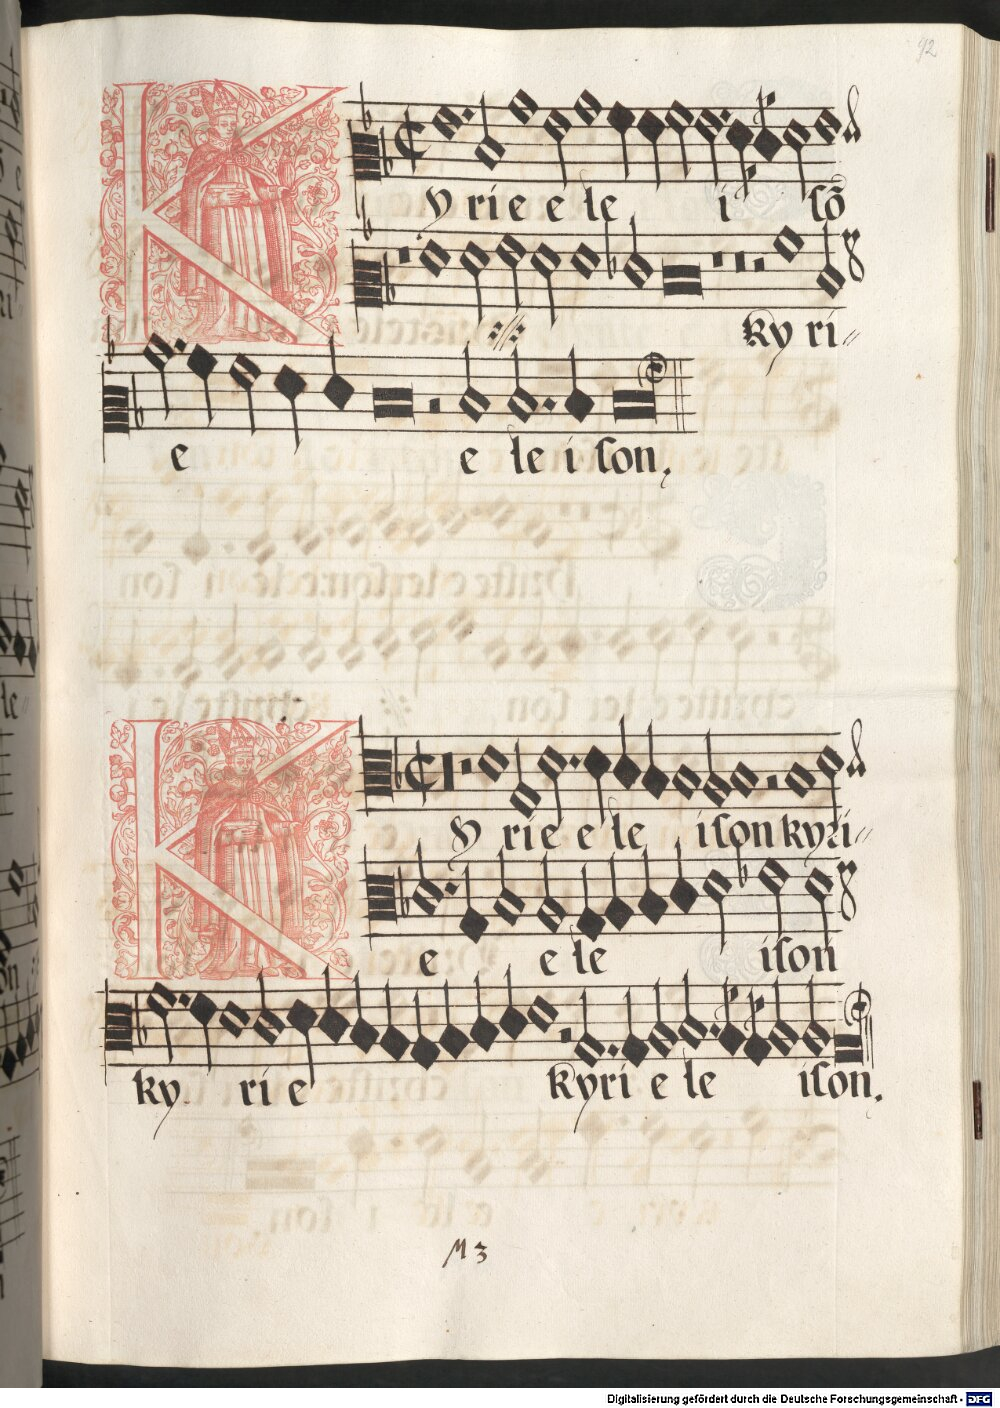 92
Kyrie e le i sō
ky ri
e e le i son,
Kyrie e le ison kyri
e e le ison
ky ri e kyri e le ison,
M 3
Digitalisierung gefördert durch die Deutsche Forschungsgemeinschaft - DFG